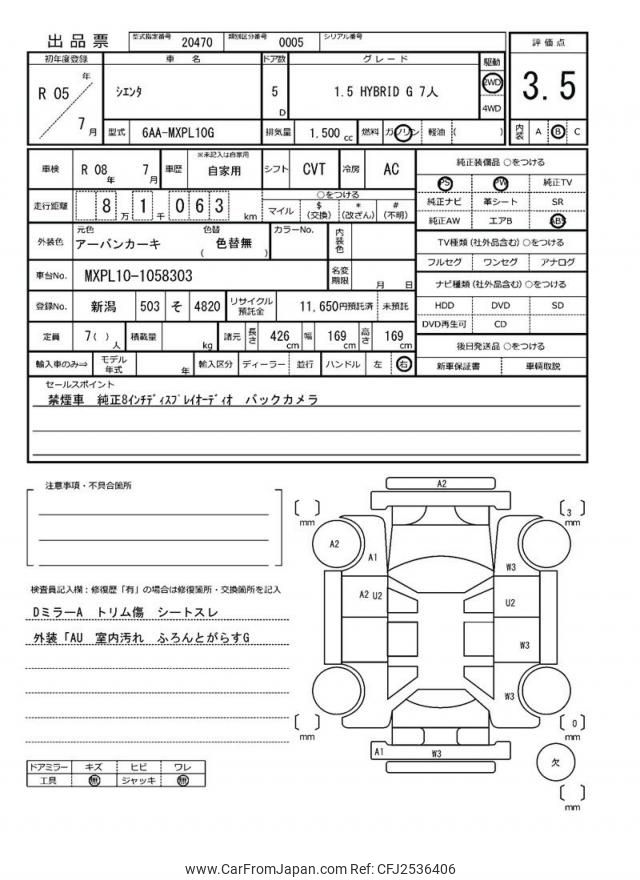 出品票 型式指定番号 20470 類別区分番号 0005 シリアル番号
評価点
3.5
内装 A B C
初年度登録 車名 ドア数 グレード 駆動
R 05 年 7 月 ｼｴﾝﾀ 5 D 1.5 HYBRID G 7人 2WD 4WD
型式 6AA-MXPL10G 排気量 1,500 cc 燃料 ガソリン 軽油 ( )
車検 R 08 年 7 月 車歴 ※未記入は自家用 自家用 シフト CVT 冷房 AC
走行距離 8 万 1 千 0 6 3 km
○をつける
マイル $ (交換) * (改ざん) # (不明)
外装色 元色 アーバンカーキ 色替 ( 色替無 ) カラーNo. 内装色
車台No. MXPL10-1058303 名変期限 月 日
登録No. 新潟 503 そ 4820 リサイクル預託金 11,650円預託済 未預託
定員 7( ) 人 積載量 kg 諸元 長さ 426 cm 幅 169 cm 高さ 169 cm
輸入車のみ⇒ モデル年式 年 輸入区分 ディーラー 並行 ハンドル 左 右
純正装備品 ○をつける
PS PW 純正TV
純正ナビ 革シート SR
純正AW エアB ABS
TV種類 (社外品含む) ○をつける
フルセグ ワンセグ アナログ
ナビ種類 (社外品含む) ○をつける
HDD DVD SD
DVD再生可 CD
後日発送品 ○をつける
新車保証書 車輌取説
セールスポイント
禁煙車 純正8ｲﾝﾁﾃﾞｨｽﾌﾟﾚｲｵｰﾃﾞｨｵ バックカメラ
注意事項・不具合箇所
検査員記入欄：修復歴「有」の場合は修復箇所・交換箇所を記入
DミラーA トリム傷 シートスレ
外装「AU 室内汚れ ふろんとがらすG
ドアミラー キズ ヒビ ワレ
工具 無 ジャッキ 無
A2
[ ] mm
[ 3 ] mm
A2
A1
W3
A2 U2
U2
W3
W3
[ ] mm
[ 0 ] mm
A1
W3
欠
[ ] mm
www.CarFromJapan.com Ref: CFJ2536406